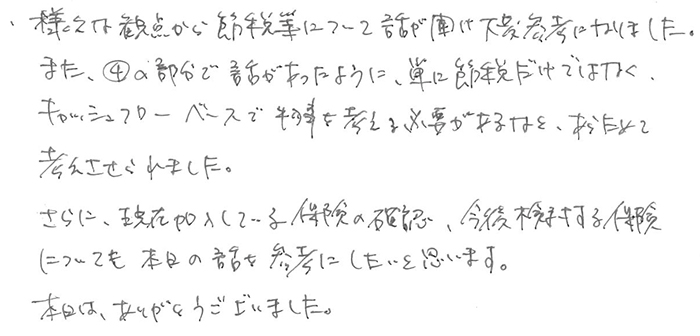 ・様々な観点から節税等について話が聞け大変参考になりました。
また、④の部分で話があったように、単に節税だけではなく、
キャッシュフローベースで物事を考える必要があるなと、あらためて
考えさせられました。
さらに、現在加入している保険の確認、今後検討する保険
についても本日の話を参考にしたいと思います。
本日は、ありがとうございました。